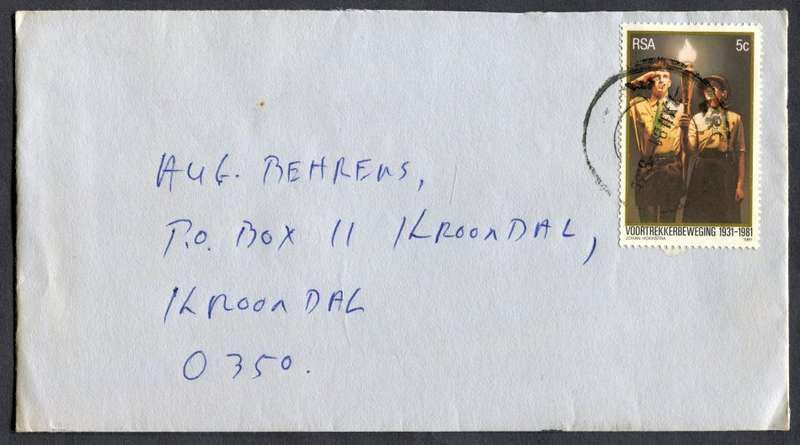 RSA 5c
VOORTREKKERBEWEGING 1931-1981
JOHAN HOEKSTRA 1981
AUG. BEHRENS,
P.O. BOX 11 KROONDAL,
KROONDAL
0350.